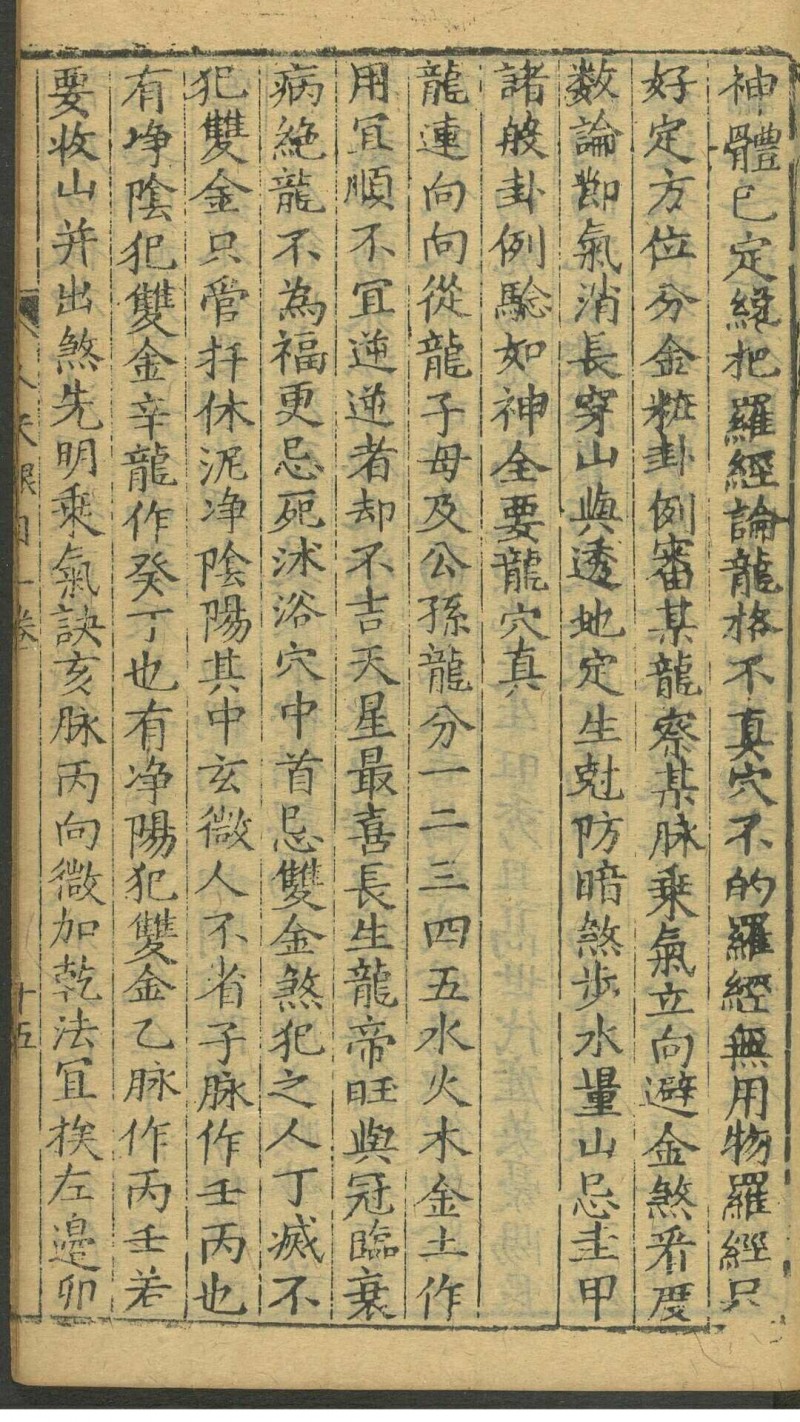 神體已定纔把羅經論龍格不真穴不的羅經無用物羅經只
好定方位分金粧卦例審某龍察某脉乘氣立向避金煞看度
数論節氣消長穿山與透地定生尅防暗煞步水量山忌圭甲
諸般卦例騐如神全要龍穴真
龍連向向從龍子母及公孫龍分一二三四五水火木金土作
用冝順不冝逆逆者却不吉天星最喜長生龍帝旺與冠臨衰
病絶龍不為福更忌死沐浴穴中首忌雙金煞犯之人丁滅不
犯雙金只管扦休泥净陰陽其中玄微人不省子脉作壬丙也
有净陰犯雙金辛龍作癸丁也有净陽犯雙金乙脉作丙壬若
要收山并出煞先明乘氣訣亥脉丙向微加乾法冝挨左邉卯
人天眼目一卷
十五